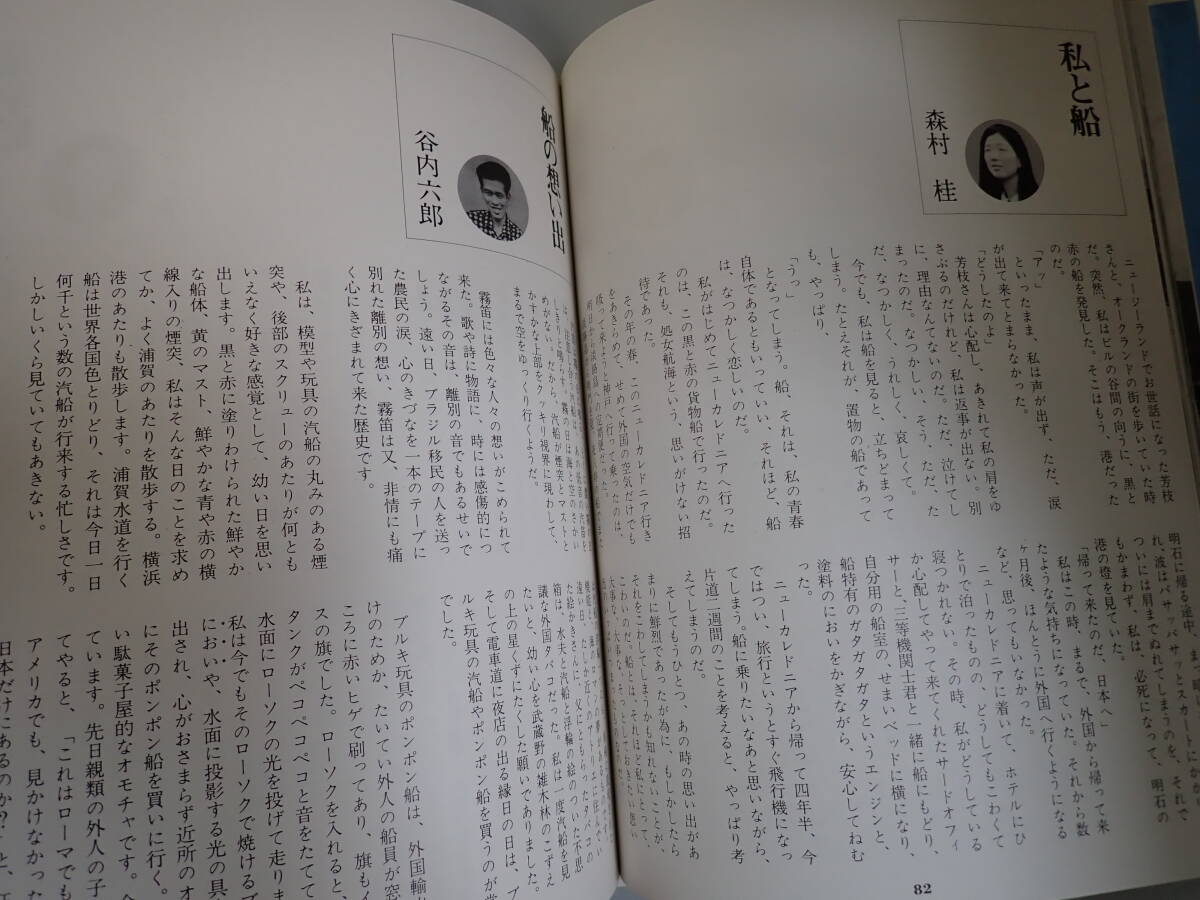 私と船
森村 桂
ニュージーランドでお世話になった芳枝
さんと、オークランドの街を歩いていた時
だ。突然、私はビルの谷間の向うに、黒と
赤の船を発見した。そこはもう、港だった
のだ。
「アッ」
といったまま、私は声が出ず、ただ、涙
が出て来てとまらなかった。
「どうしたのよ」
芳枝さんは心配し、あきれて私の肩をゆ
さぶるのだけれど、私は返事が出ない。別
に、理由なんてないのだ。ただ、泣けてし
まったのだ。なつかしい、そう、ただ、た
だ、なつかしく、うれしく、哀しくて。
今でも、私は船を見ると、立ちどまって
しまう。たとえそれが、置物の船であって
も、やっぱり、
「うっ」
となってしまう。船、それは、私の青春
自体であるともいっていい、それほど、船
は、なつかしく恋しいのだ。
私がはじめてニューカレドニアへ行った
のは、この黒と赤の貨物船で行ったのだ。
それも、処女航海という、思いがけない招
待であった。
その年の春、このニューカレドニア行き
をあきらめて、せめて外国の空気だけでも
吸って来ようと神戸へ行って乗ったのは、
明石に帰る途中、
れ、波はバサッバサッとスカートにかか
ついには肩までぬれてしまうのを、それで
もかまわず、私は、必死になって、明石の
港の燈を見ていた。
「帰って来たのだ、日本へ」
私はこの時、まるで、外国から帰って来
たような気持ちになっていた。それから数
ヶ月後、ほんとうに外国へ行くようになる
など、思ってもいなかった。
ニューカレドニアに着いて、ホテルにひ
とりで泊ったものの、どうしてもこわくて
寝つかれない。その時、私がどうしている
か心配してやって来てくれたサードオフィ
サーと、三等機関士君と一緒に船にもどり、
自分用の船室の、せまいベッドに横になり、
船特有のガタガタガタというエンジンと、
塗料のにおいをかぎながら、安心してねむ
った。
ニューカレドニアから帰って四年半、今
ではつい、旅行というとすぐ飛行機になっ
てしまう。船に乗りたいなあと思いながら、
片道二週間のことを考えると、やっぱり考
えてしまうのだ。
そしてもうひとつ、あの時の思い出があ
まりに鮮烈であったが為に、もしかしたら
それをこわしてしまうかも知れないことが、
こわいのだ。船とは、それほど私にとって、
82
船の想い出
谷内六郎
めがない。だから、汽船が煙突とマストと
かすかな上部をクッキリ視界に現わして、
まるで空をゆっくり行くようだ。
霧笛には色々な人々の想いがこめられて
来た。歌や詩に物語に、時には感傷的につ
ながるその音は、離別の音でもあるせいで
しょう。遠い日、ブラジル移民の人を送っ
た農民の涙、心のきづなを一本のテープに
別れた離別の想い、霧笛は又、非情にも痛
く心にきざまれて来た歴史です。
私は、模型や玩具の汽船の丸みのある煙
突や、後部のスクリューのあたりが何とも
いえなく好きな感覚として、幼い日を思い
出します。黒と赤に塗りわけられた鮮やか
な船体、黄のマスト、鮮やかな青や赤の横
線入りの煙突、私はそんな日のことを求め
てか、よく浦賀のあたりを散歩する。横浜
港のあたりも散歩します。浦賀水道を行く
船は世界各国色とりどり、それは今日一日
何千という数の汽船が行来する忙しさです。
しかしいくら見ていてもあきない。
遠い日、たしか父にともらったタバコの
箱は、水夫と汽船と浮輪の絵のついた不思
議な外国タバコだった。私は一度汽船を見
たいと、幼い心を武蔵野の雑木林のこずえ
の上の星くずにたくした願いでありました。
そして電車道に夜店の出る縁日の日は、ブ
ルキ玩具の汽船やポンポン船を買うのが
でした。
ブルキ玩具のポンポン船は、外国輸
けのためか、たいてい外人の船員が窓
ころに赤いヒゲで刷ってあり、旗もイ
スの旗でした。ローソクを入れると、
タンクがペコペコペコと音をたてて
水面にローソクの光を投げて走りま
私は今でもそのローソクで焼けるブ
においや、水面に投影する光の具
出され、心がおさまらず近所のオ
にそのポンポン船を買いに行く。
い駄菓子屋的なオモチャです。へ
ています。先日親類の外人の子
てやると、「これはローマでも
アメリカでも、見かけなかった
日本だけにあるのか？」と、